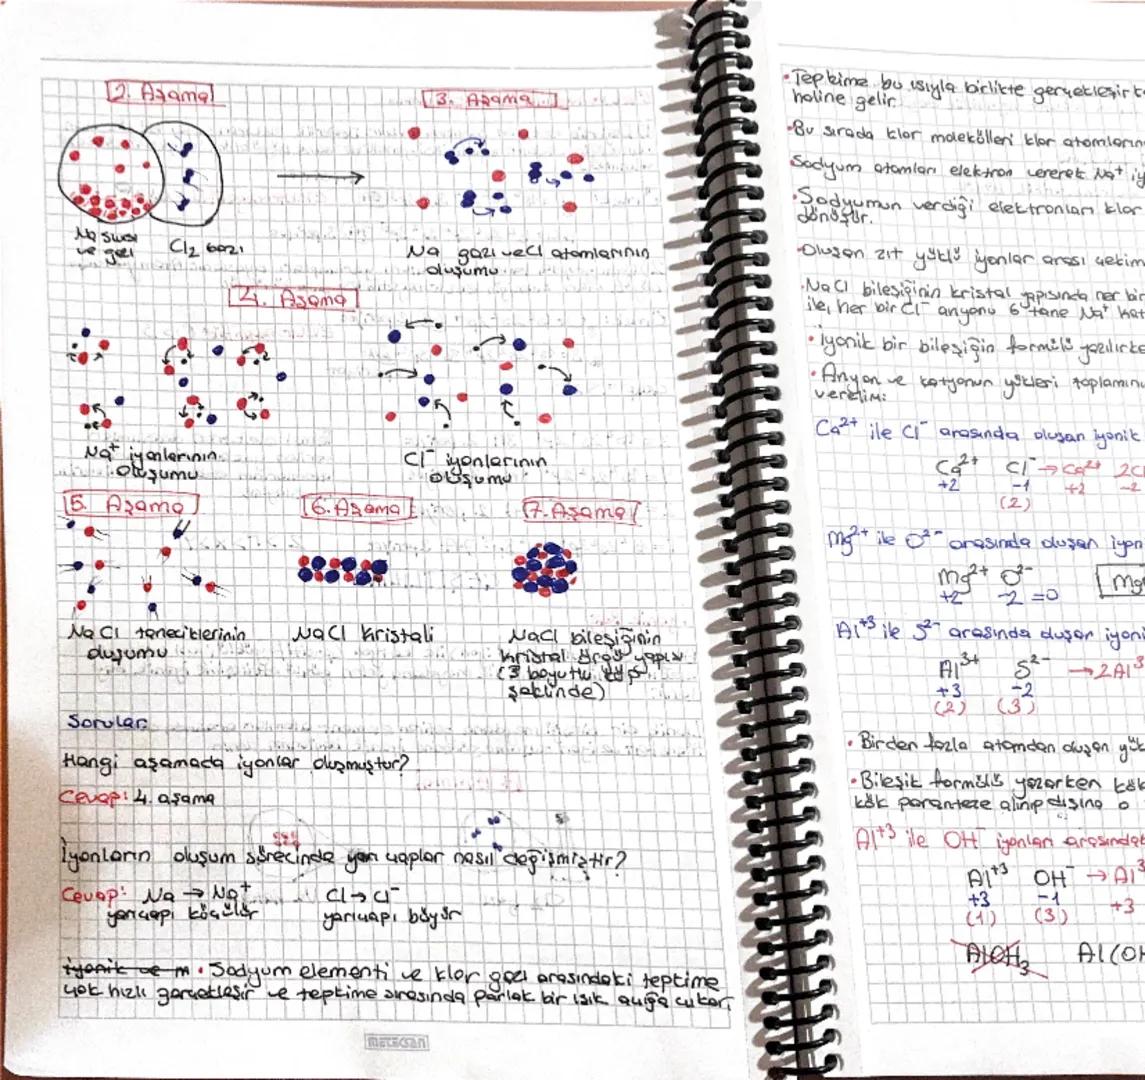 2. Aşama
3. Aşama
Na sıvısı
ve gazı
Cl₂ gazı
Na gazı ve Cl atomlarının
oluşumu
4. Aşama
Na⁺ iyonlarının
oluşumu
Cl⁻ iyonlarının
oluşumu
5. Aşama
6. Aşama
7. Aşama
NaCl taneciklerinin
oluşumu
NaCl kristali
NaCl bileşiğinin
kristal örgü yapısı
(3 boyutlu küp
şeklinde)
Sorular
Hangi aşamada iyonlar oluşmuştur?
Cevap: 4. aşama
İyonların oluşum sürecinde yarı çaplar nasıl değişmiştir?
Cevap: Na → Na⁺ Cl → Cl⁻
yarıçapı küçülür yarıçapı büyür
iyonik ve m • Sodyum elementi ve klor gazı arasındaki tepkime
çok hızlı gerçekleşir ve tepkime sırasında parlak bir ışık açığa çıkar.
metecsan
• Tepkime bu ısıyla birlikte gerçekleşirk
haline gelir
• Bu sırada klor molekülleri klor atomların
Sodyum atomları elektron vererek Na⁺ iy
• Sodyumun verdiği elektronları klor
dönüşür.
• Oluşan zıt yüklü iyonlar arası çekim
• NaCl bileşiğinin kristal yapısında her bir
ile, her bir Cl⁻ anyonu 6 tane Na⁺ kat
• İyonik bir bileşiğin formülü yazılırke
• Anyon ve katyonun yükleri toplamını
verelim:
Ca²⁺ ile Cl⁻ arasında oluşan iyonik
Ca²⁺ Cl⁻ → Ca²⁺ 2Cl
+2 -1 +2 -2
(2)
Mg²⁺ ile O²⁻ arasında oluşan iyon
Mg²⁺ O²⁻ Mg
+2 -2 =0
Al⁺³ ile S²⁻ arasında oluşan iyoni
Al³⁺ S²⁻ → 2Al³
+3 -2
(2) (3)
• Birden fazla atomdan oluşan yük
• Bileşik formülü yazarken kök
kök paranteze alınıp dışına
Al⁺³ ile OH⁻ iyonları arasındak
Al⁺³ OH⁻ → Al³
+3 -1 +3
(1) (3)
AlOH₃ Al(OH